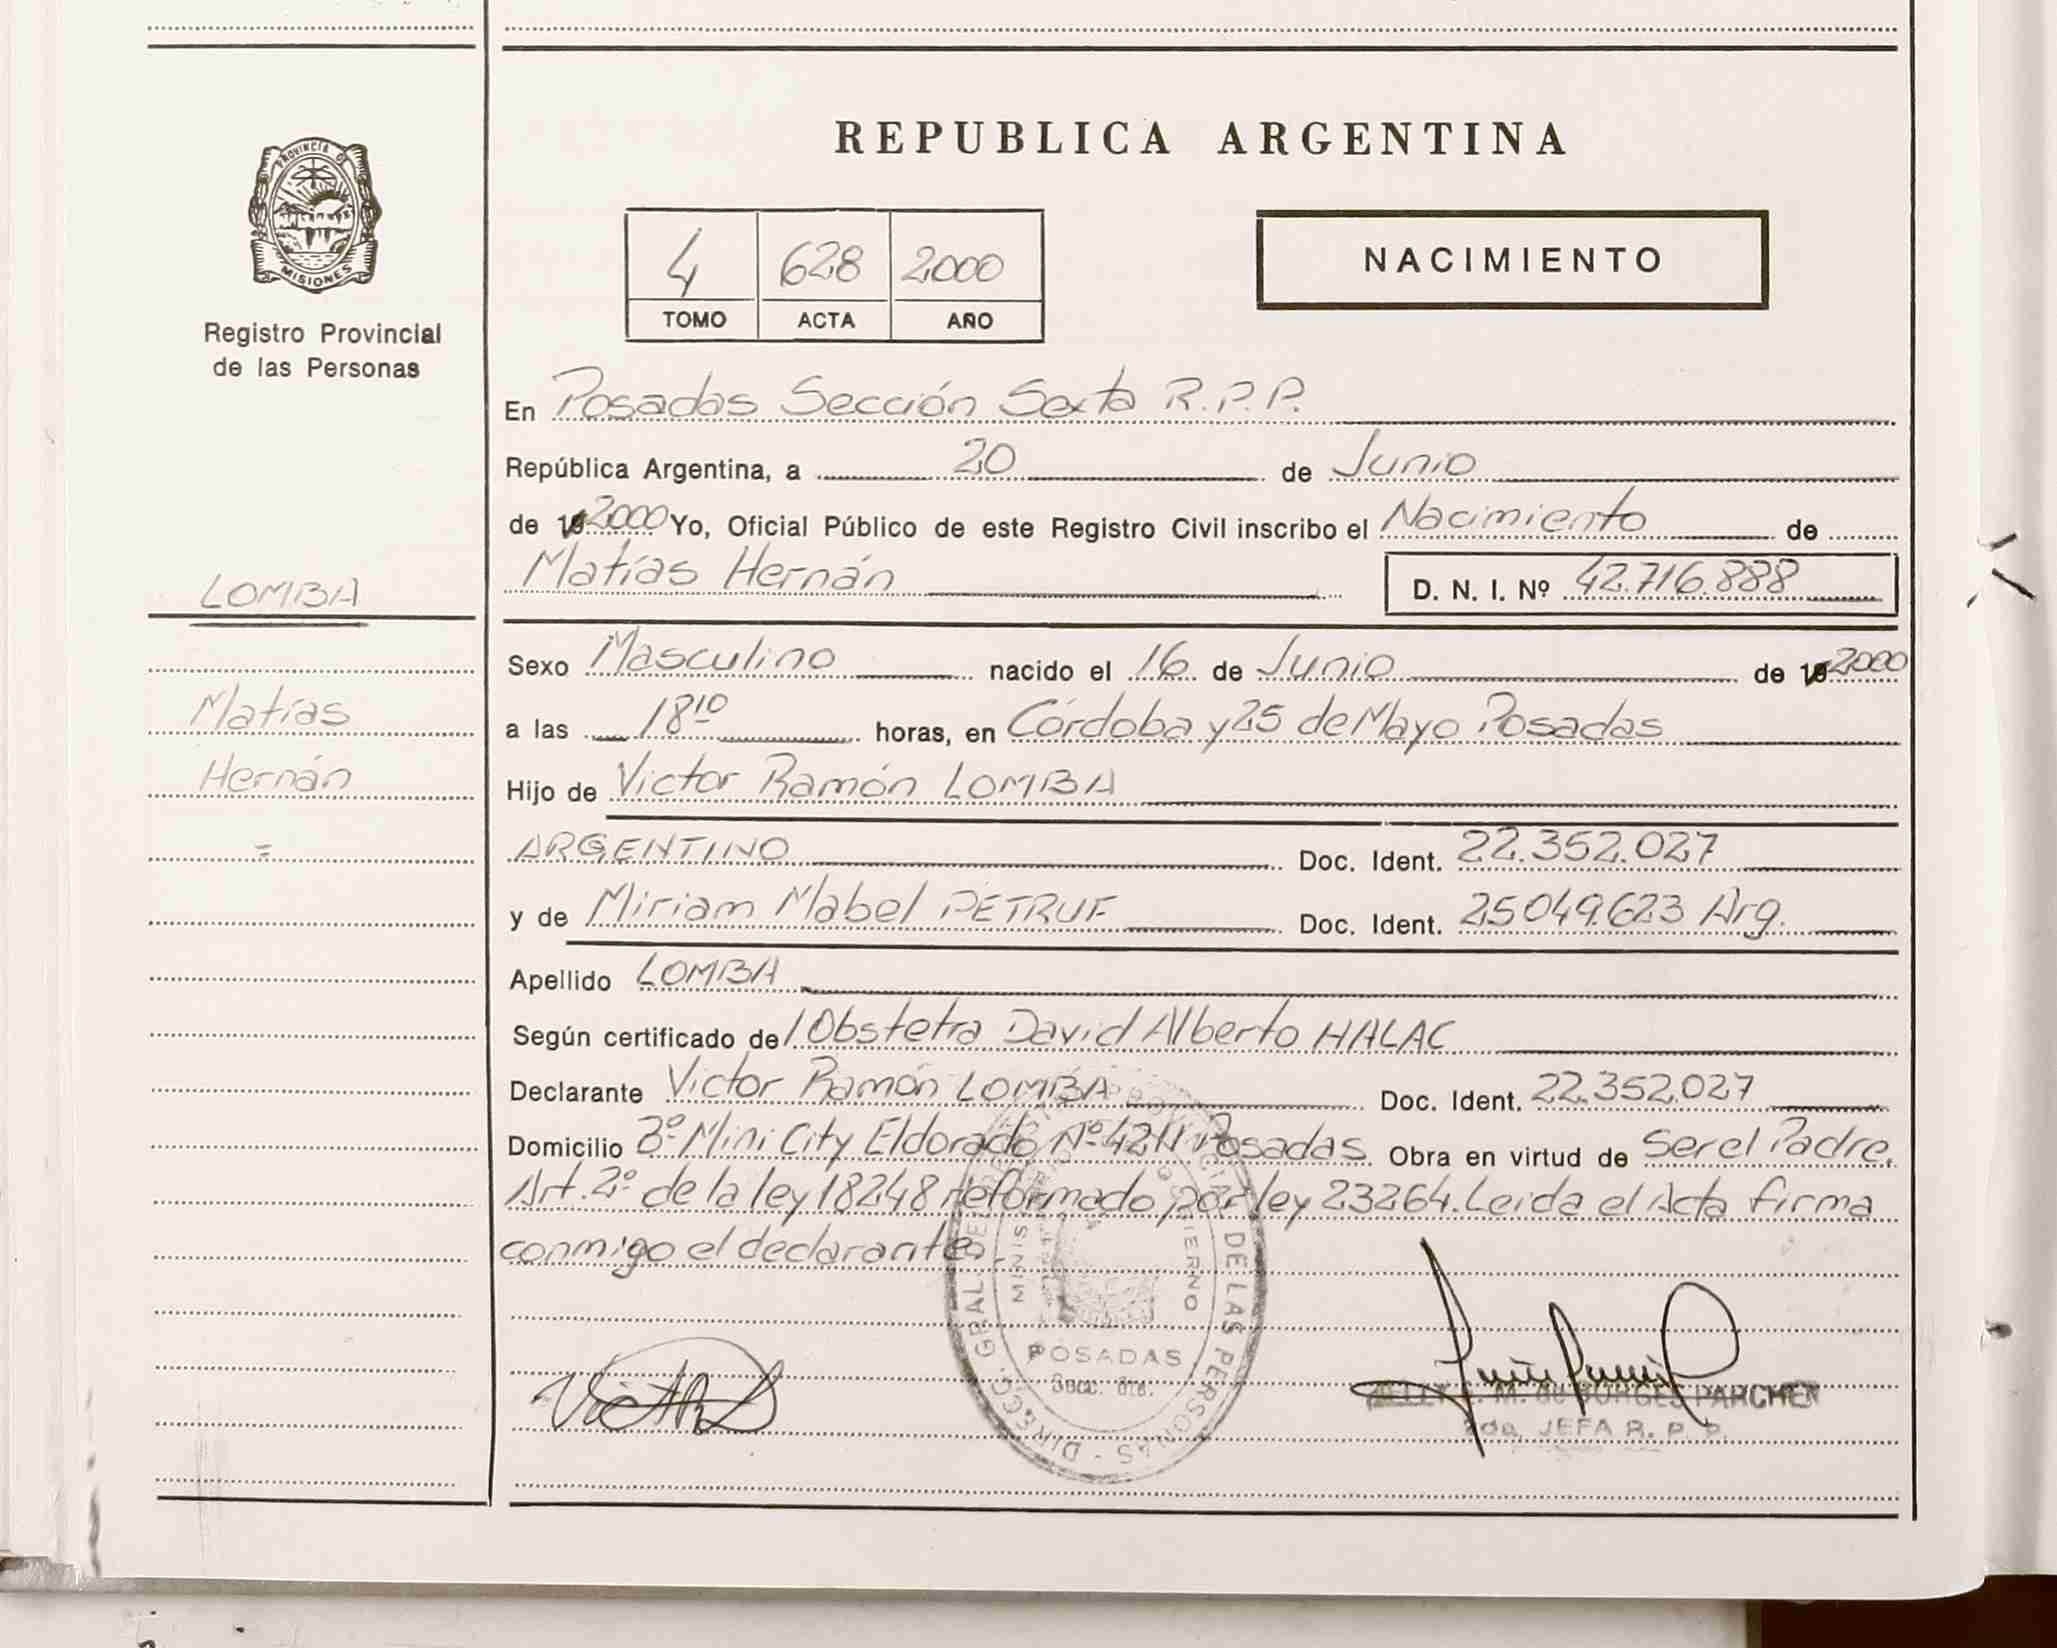 REPUBLICA ARGENTINA
PROVINCIA DE
MISIONES
Registro Provincial
de las Personas
4 628 2000
TOMO ACTA AÑO
NACIMIENTO
En Posadas Sección Sexta R.P.P.
República Argentina, a 20 de Junio
de 19 2000 Yo, Oficial Público de este Registro Civil inscribo el Nacimiento de
Matías Hernán D. N. I. Nº 42.716.888
LOMBA
Matías
Hernán
=
Sexo Masculino nacido el 16 de Junio de 19 2000
a las 18¹⁰ horas, en Córdoba y 25 de Mayo Posadas
Hijo de Victor Ramón LOMBA
ARGENTINO Doc. Ident. 22.352.027
y de Miriam Mabel PETRUF Doc. Ident. 25049.623 Arg.
Apellido LOMBA
Según certificado de l Obstetra David Alberto HALAC
Declarante Victor Ramón LOMBA Doc. Ident. 22.352.027
Domicilio Bº Mini City Eldorado Nº 4211 Posadas Obra en virtud de Ser el Padre.
Art. 2º de la ley 18248 reformado por ley 23264. Leida el Acta firma
conmigo el declarante.
DIRECC. GRAL. DE LAS PERSONAS
GOBIERNO
POSADAS
Secc. 6ta.
M. de BORGES PARCHEN
JEFA R. P. P.